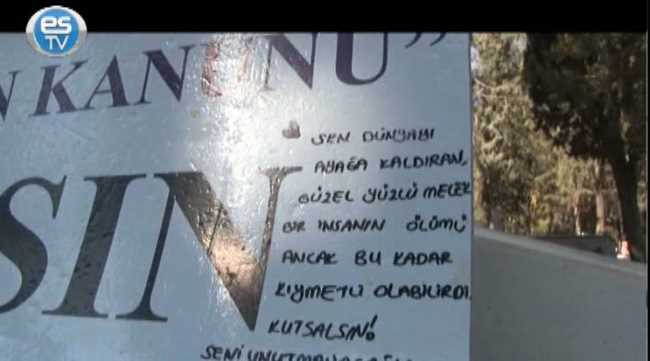 es
TV
N KANUNU”
SIN
SEN DÜNYAYI
AYAĞA KALDIRAN,
GÜZEL YÜZLÜ MELEK
BİR İNSANIN ÖLÜMÜ
ANCAK BU KADAR
KIYMETLİ OLABİLİRDİ.
KUTSALSIN!
SENİ